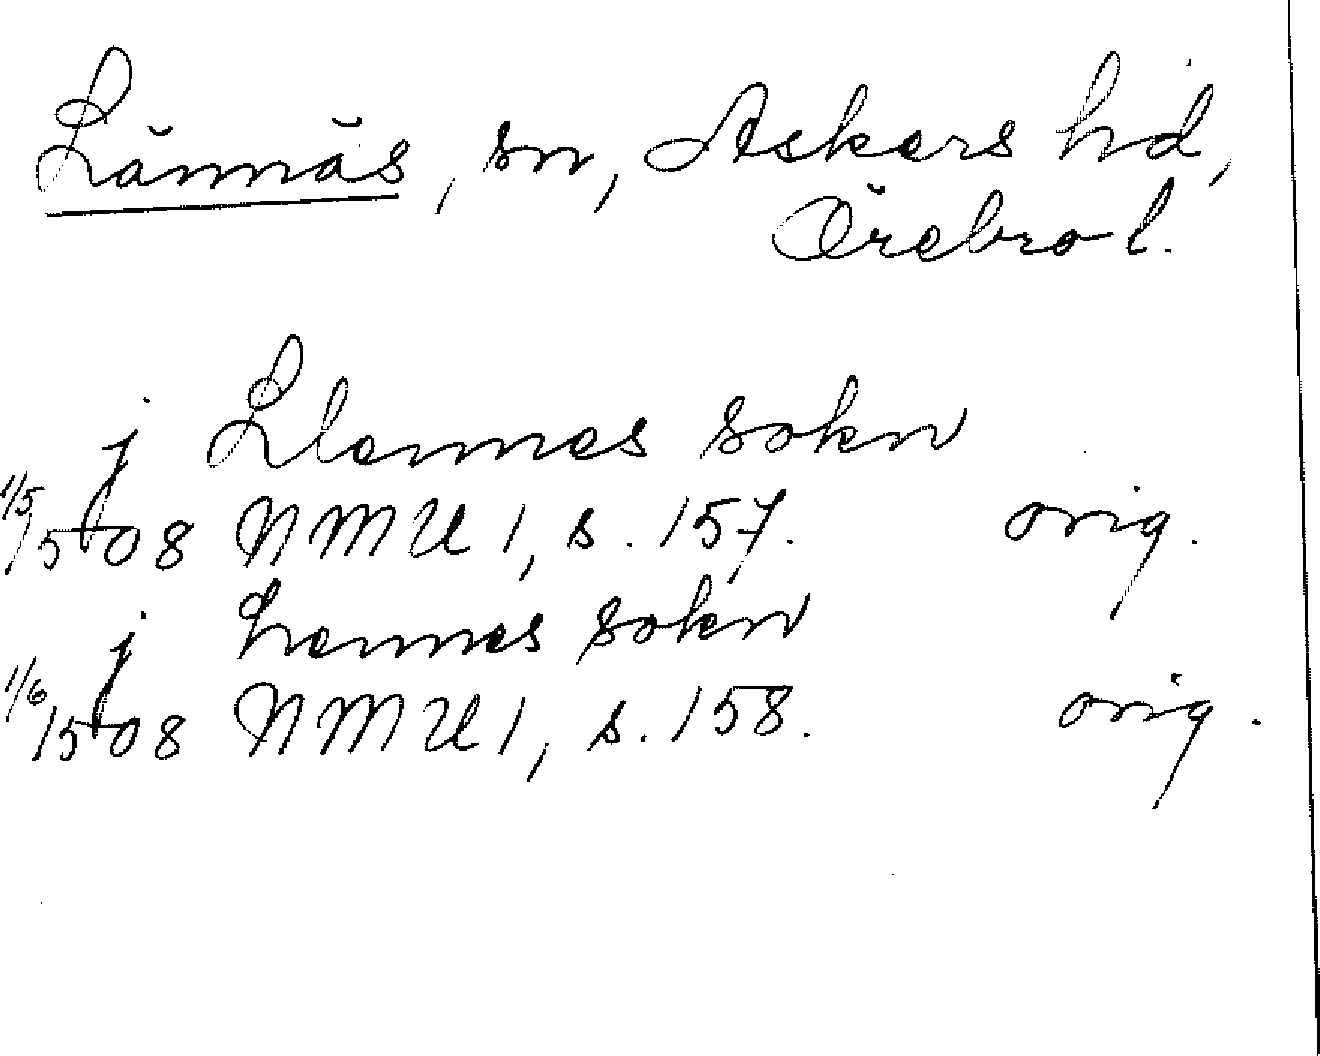 Lännäs, sn, Askers hd,
Örebro l.
j Llennes sokn
1/5 1508 NMU 1, s. 157. orig.
j Lennes sokn
1/6 1508 NMU 1, s. 158. orig.